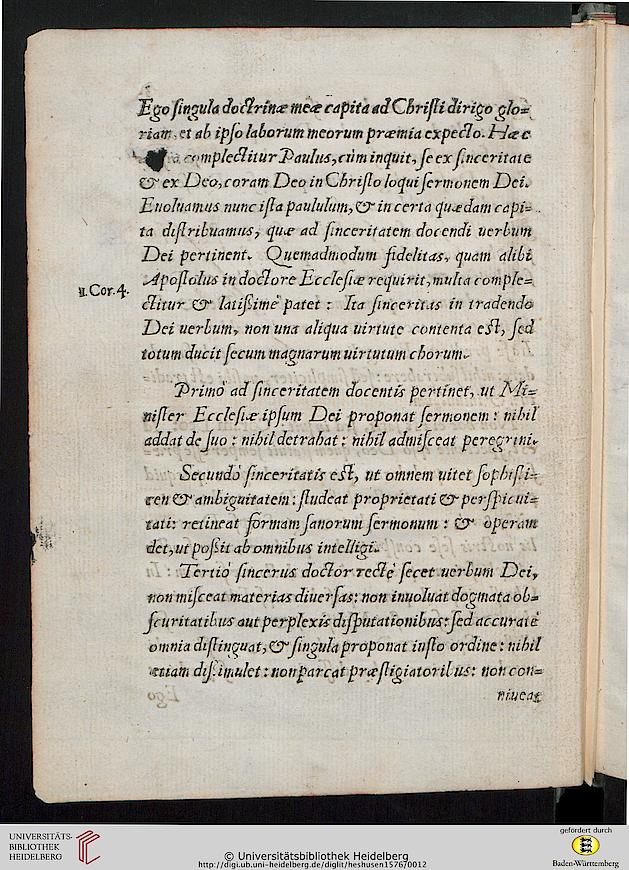 Ego singula doctrinæ meæ capita ad Christi dirigo glo=
riam, et ab ipso laborum meorum præmia expecto. Hæc
complectitur Paulus, cùm inquit, se ex sinceritate
& ex Deo, coram Deo in Christo loqui sermonem Dei.
Euoluamus nunc ista paululum, & in certa quædam capi=
ta distribuamus, quæ ad sinceritatem docendi uerbum
Dei pertinent. Quemadmodum fidelitas, quam alibi
Apostolus in doctore Ecclesiæ requirit, multa comple=
II. Cor. 4.
ctitur & latißimè patet : Ita sinceritas in tradendo
Dei uerbum, non una aliqua uirtute contenta est, sed
totum ducit secum magnarum uirtutum chorum.
Primò ad sinceritatem docentis pertinet, ut Mi=
nister Ecclesiæ ipsum Dei proponat sermonem : nihil
addat de suo : nihil detrahat : nihil admisceat peregrini.
Secundò sinceritatis est, ut omnem uitet sophisti=
cen & ambiguitatem : studeat proprietati & perspicui=
tati: retineat formam sanorum sermonum : & operam
det, ut poßit ab omnibus intelligi.
Tertiò sincerus doctor rectè secet uerbum Dei,
non misceat materias diuersas: non inuoluat dogmata ob=
scuritatibus aut perplexis disputationibus: sed accuratè
omnia distinguat, & singula proponat iusto ordine : nihil
etiam dißimulet : non parcat præstigiatoribus: non con=
niueat
UNIVERSITÄTS-
BIBLIOTHEK
HEIDELBERG
© Universitätsbibliothek Heidelberg
http://digi.ub.uni-heidelberg.de/diglit/heshusen1576/0012
gefördert durch
Baden-Württemberg